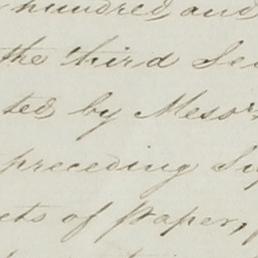 hundred and
the third Se
ted by Messrs
preceding Su
ets of Paper,